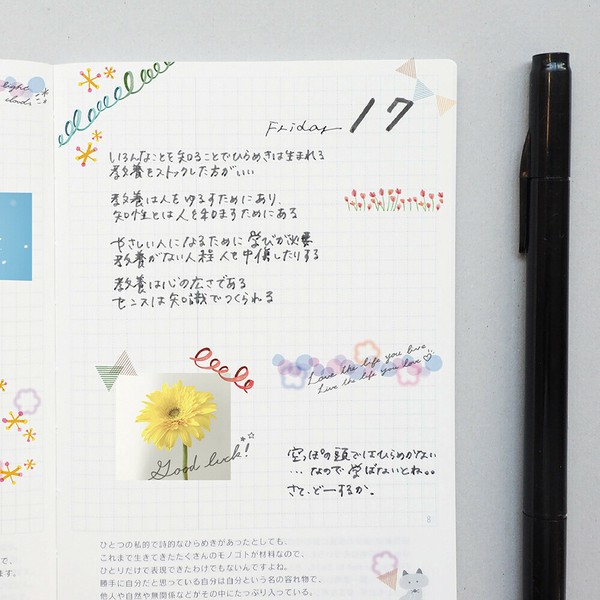 light
clouds
Friday 17
いろんなことを知ることでひらめきは生まれる
教養をストックした方がいい
教養は人をゆるすためにあり、
知性とは人を和ますためにある
やさしい人になるために学びが必要
教養がない人程 人を中傷したりする
教養は心の広さである
センスは知識でつくられる
Love the life you live.
Live the life you love
Good luck!
空っぽの頭ではひらめかない
…なので学ばないとね。。
さて、どーするか。
8
ひとつの私的で詩的なひらめきがあったとしても、
これまで生きてきたたくさんのモノゴトが材料なので、
ひとりだけで表現できたわけでもないんですよね。
勝手に自分だと思っている自分は自分という名の容れ物で、
他人や自然や無関係などがその中にたっぷり入っている。
で、
ます。